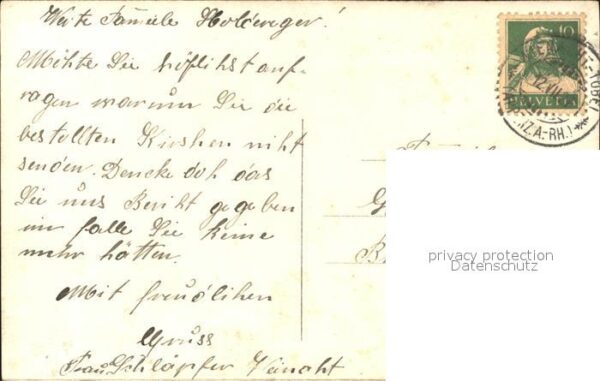 Werte Familie Holderegger!
Möhte Sie höflihst anf-
ragen warum Sie die
bestellten Kirshen niht
senden. Dencke doh das
Sie uns Beriht gegeben
im falle Sie keine
mehr hätten.
Mit freudlihen
Gruss
Frau Schläpfer
10
HELVETIA
12.VII
A.-RH.)
privacy protection
Datenschutz